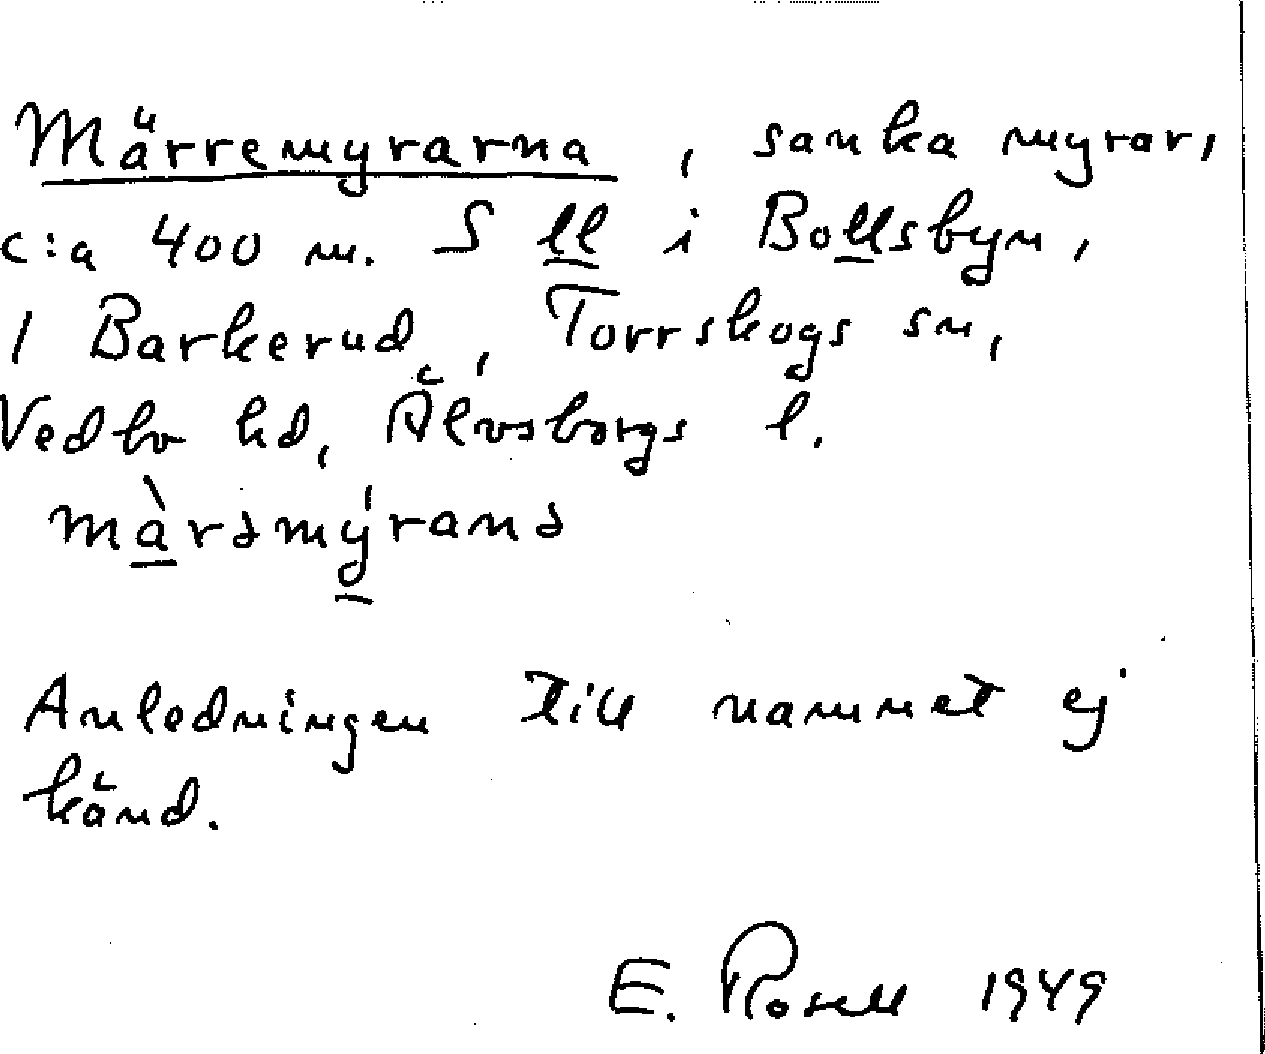 Märremyrarna, sanka myrar,
c:a 400 m. S ll i Bollsbyn,
1 Barkerud, Torrskogs sn,
Vedbo hd, Älvsborgs l.
màrəmýranə
Anledningen till namnet ej
känd.
E. Rosell 1949